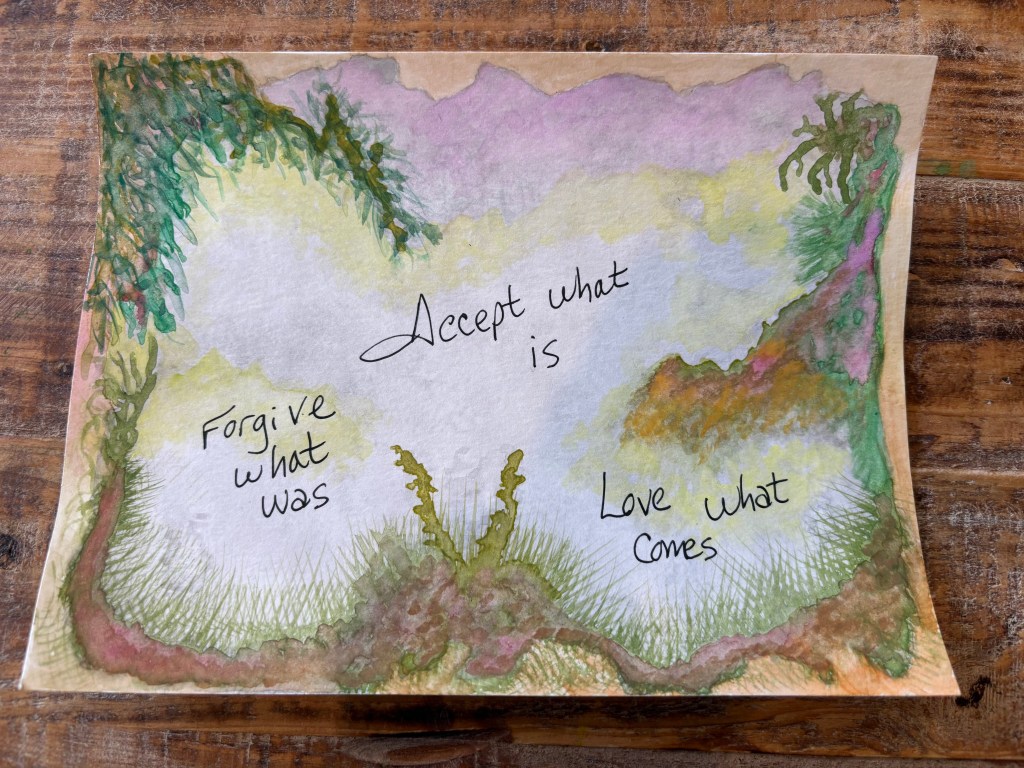 Forgive
what
was
Accept what
is
Love what
comes